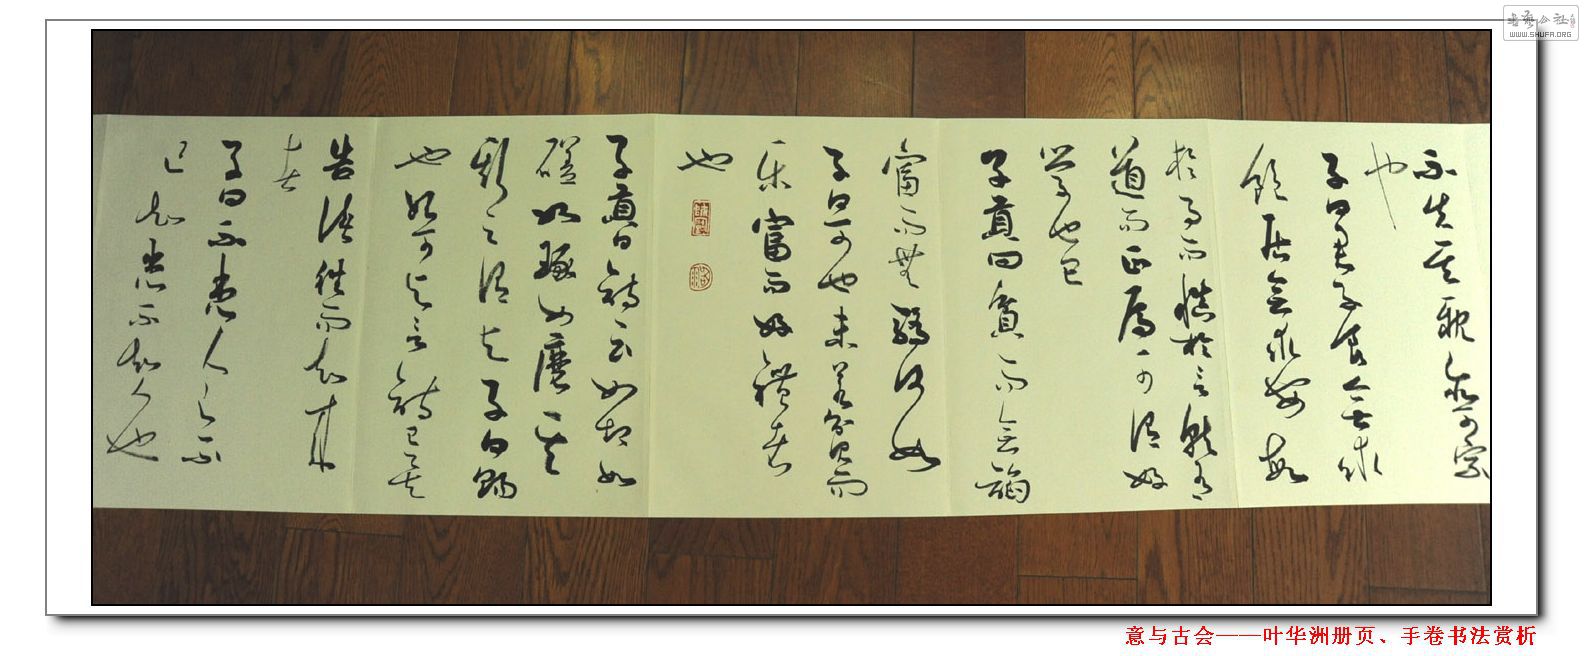 不失其親亦可宗
也
子曰君子食無求
飽居無求安敏
於事而慎於言就有
道而正焉可謂好
学也已
子貢曰貧而無諂
富而無驕何如
子曰可也未若貧而
乐富而好禮者
也
子貢曰詩云如切如
磋如琢如磨其
斯之謂与子曰賜
也始可与言詩已矣
告諸往而知来
者
子曰不患人之不
己知患不知人也
书艺公社
WWW.SHUFA.ORG
意与古会——叶华洲册页、手卷书法赏析